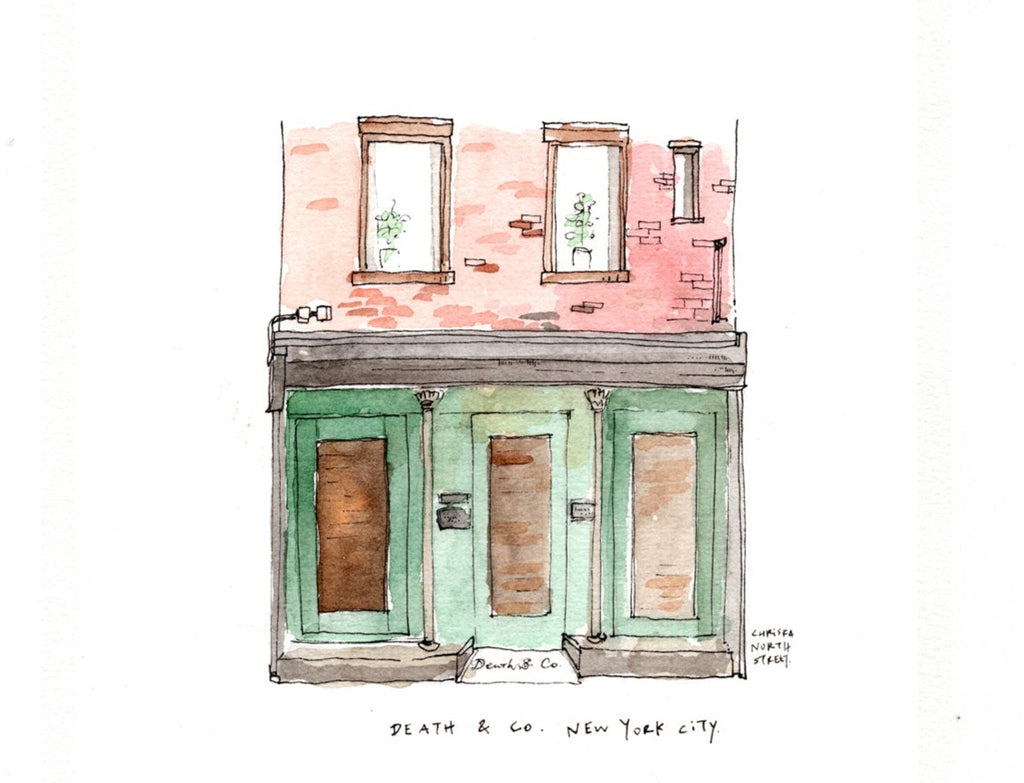 Death & Co.
CHRISFA
NORTH
STREET.
DEATH & CO. NEW YORK CITY.